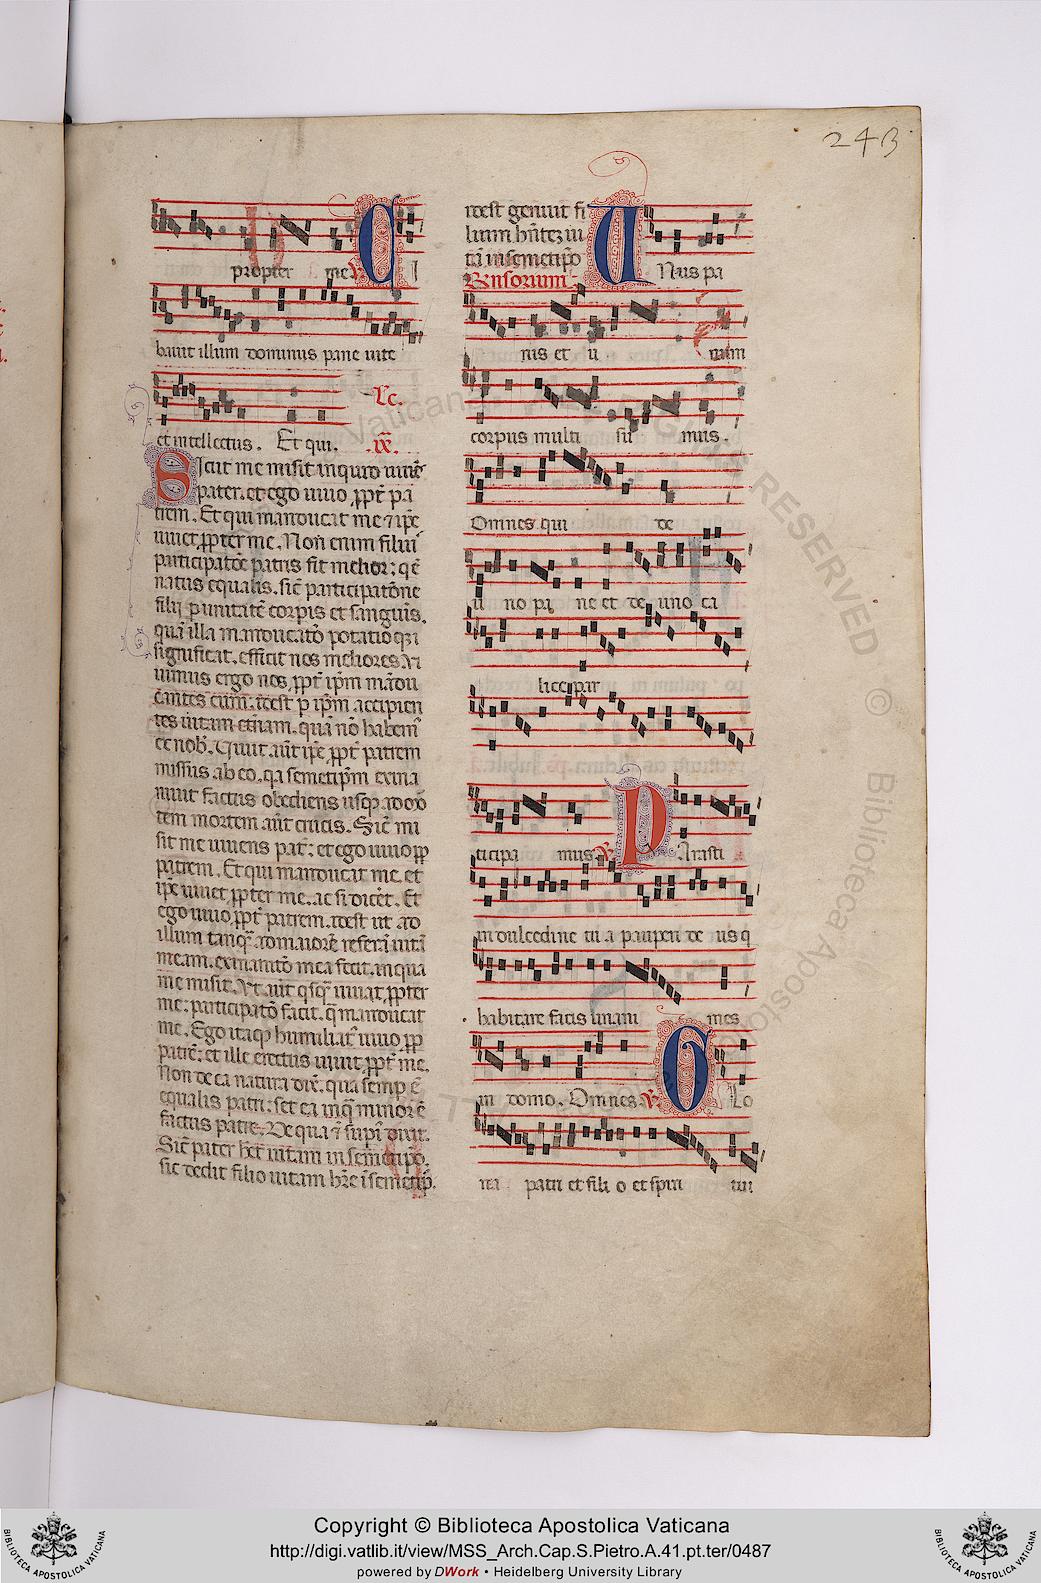 243
propter me ℟ C I
bauit illum dominus pane uite
et intellectus. Et qui. Lc. ix.
Sicut me misit inquit uiuēs
pater. et ego uiuo ꝓpt̄ pa
trem. Et qui manducat me ⁊ ip̄e
uiuet ꝓpter me. Non enim filiuſ
participatōe patris fit melior: qͥ ē
natus equalis. sic̄ participatōne
filij ꝑ unitatē corpīs et sanguīs,
quā illa manducatō potatioqꝫ
significat. efficit nos meliores. Ui
uimus ergo nos ꝓpt̄ ip̄m mādu
cantes eum: idest ꝑ ip̄m accipien
tes uitam et̄nam. quā nō habemꝰ
ex nob̄. Uiuit aūt ip̄e ꝓpt̄ patrem
missus ab eo. qa semetip̄m exina
niuit factus obediens usqꝫ ad
tem mortem aūt crucis. Sic̄ mi
sit me uiuens pat̄: et ego uiuo ꝓp
patrem. Et qui manducat me. et
ip̄e uiuet ꝓpter me. ac si dicēt. Et
ego uiuo ꝓpt̄ patrem. idest ut ad
illum tanqͣ ad maiorē referā uitā
meam. exinanitō mea fecit. in qua
me misit. Ut aūt qͥsqͣ uiuat ꝓpter
me: participatō facit. qͣ manducat
me. Ego itaqꝫ humiliatꝰ uiuo ꝓp
patrē: et ille erectus uiuit ꝓpt̄ me.
Non de ea natura dix̄. qua semp̄ ē
equalis patri: set ea in qͣ minor ē
factus patre. De qua ⁊ supͥ dixit.
Sic̄ pater het̄ uitam in semetip̄o.
sic dedit filio uitam hr̄e ī semetip̄.
idest genuit fi
lium hn̄tem ui
tā in semetip̄o
Rēnsorium. U Nus pa
nis et u num
corpus multi su mus.
Omnes qui de
u no pa ne et de uno ca
lice par
ticipa mus ℟ P Arasti
in dulcedine tu a pauperi de us q
habitare facis unani mes
in domo. Omnes. ℟ G Lo
ria patri et fili o et spiri tui
Copyright © Biblioteca Apostolica Vaticana
http://digi.vatlib.it/view/MSS_Arch.Cap.S.Pietro.A.41.pt.ter/0487
powered by DWork • Heidelberg University Library